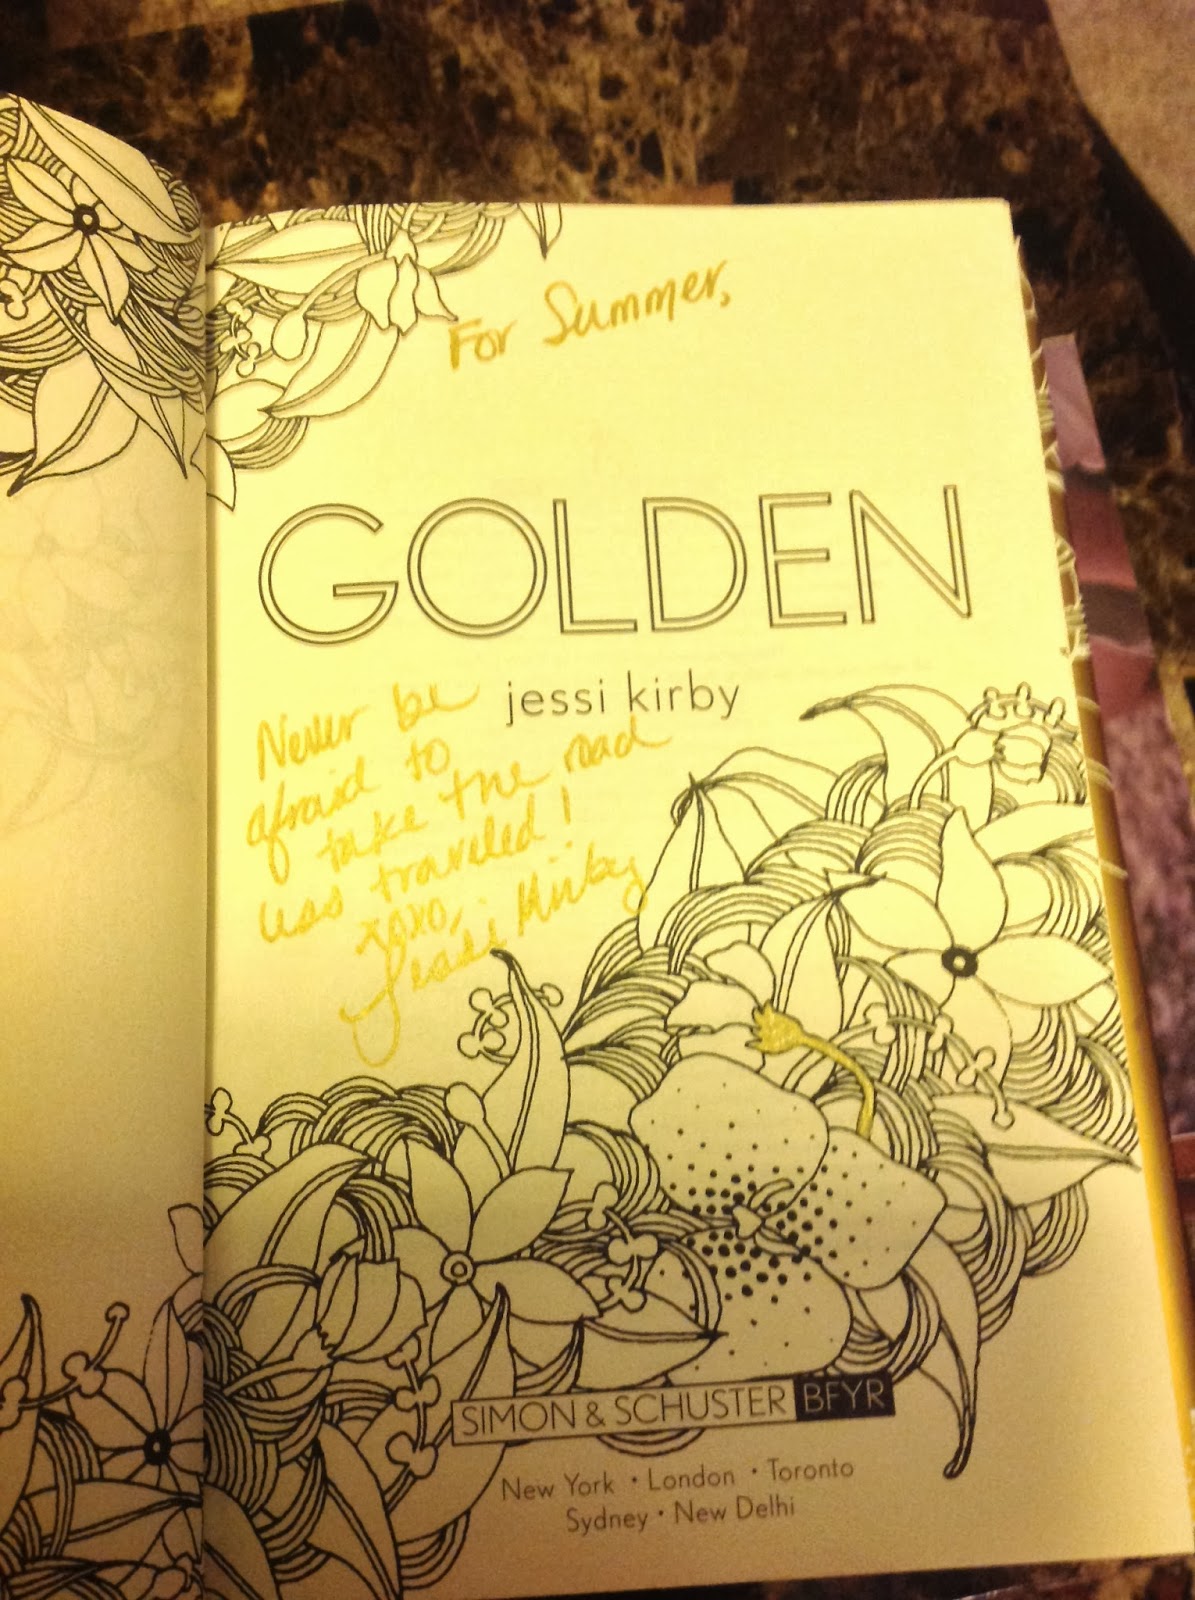 For Summer,
GOLDEN
jessi kirby
Never be
afraid to
take the road
less traveled!
xoxo,
Jessi Kirby
SIMON & SCHUSTER BFYR
New York • London • Toronto
Sydney • New Delhi